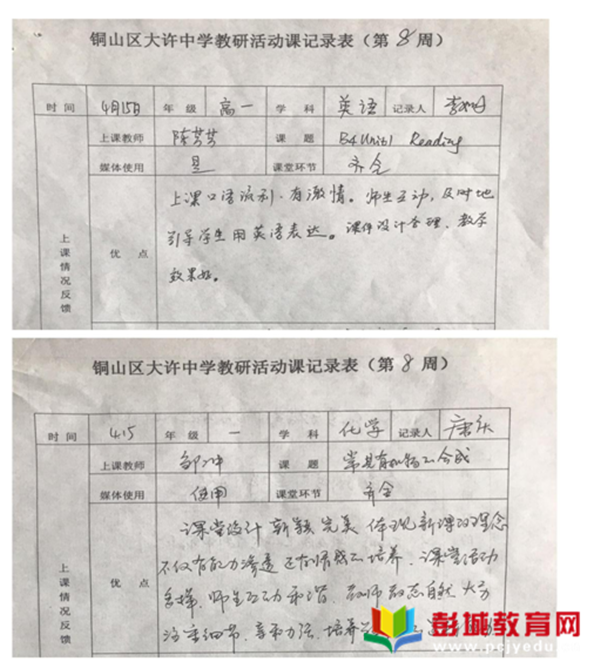 铜山区大许中学教研活动课记录表（第8周）
时间 4月15日 年级 高一 学科 英语 记录人 李
上课教师 陈芳芳 课题 B4 Unit1 Reading
媒体使用 是 课堂环节 齐全
上课口语流利，有激情。师生互动，及时地
上课情况反馈 优点 引导学生用英语表达。课件设计合理，教学
效果好。
铜山区大许中学教研活动课记录表（第8周）
时间 4.15 年级 一 学科 化学 记录人 唐
上课教师 邹冲 课题 常见有机物的合成
媒体使用 使用 课堂环节 齐全
课堂设计新颖完美 体现新课改理念
不仅有能力渗透 还有情感的培养．课堂活动
上课情况反馈 优点 多样．师生互动和谐 教师教态自然 大方
注重细节，亲和力强．培养
彭城教育网
www.pcjyedu